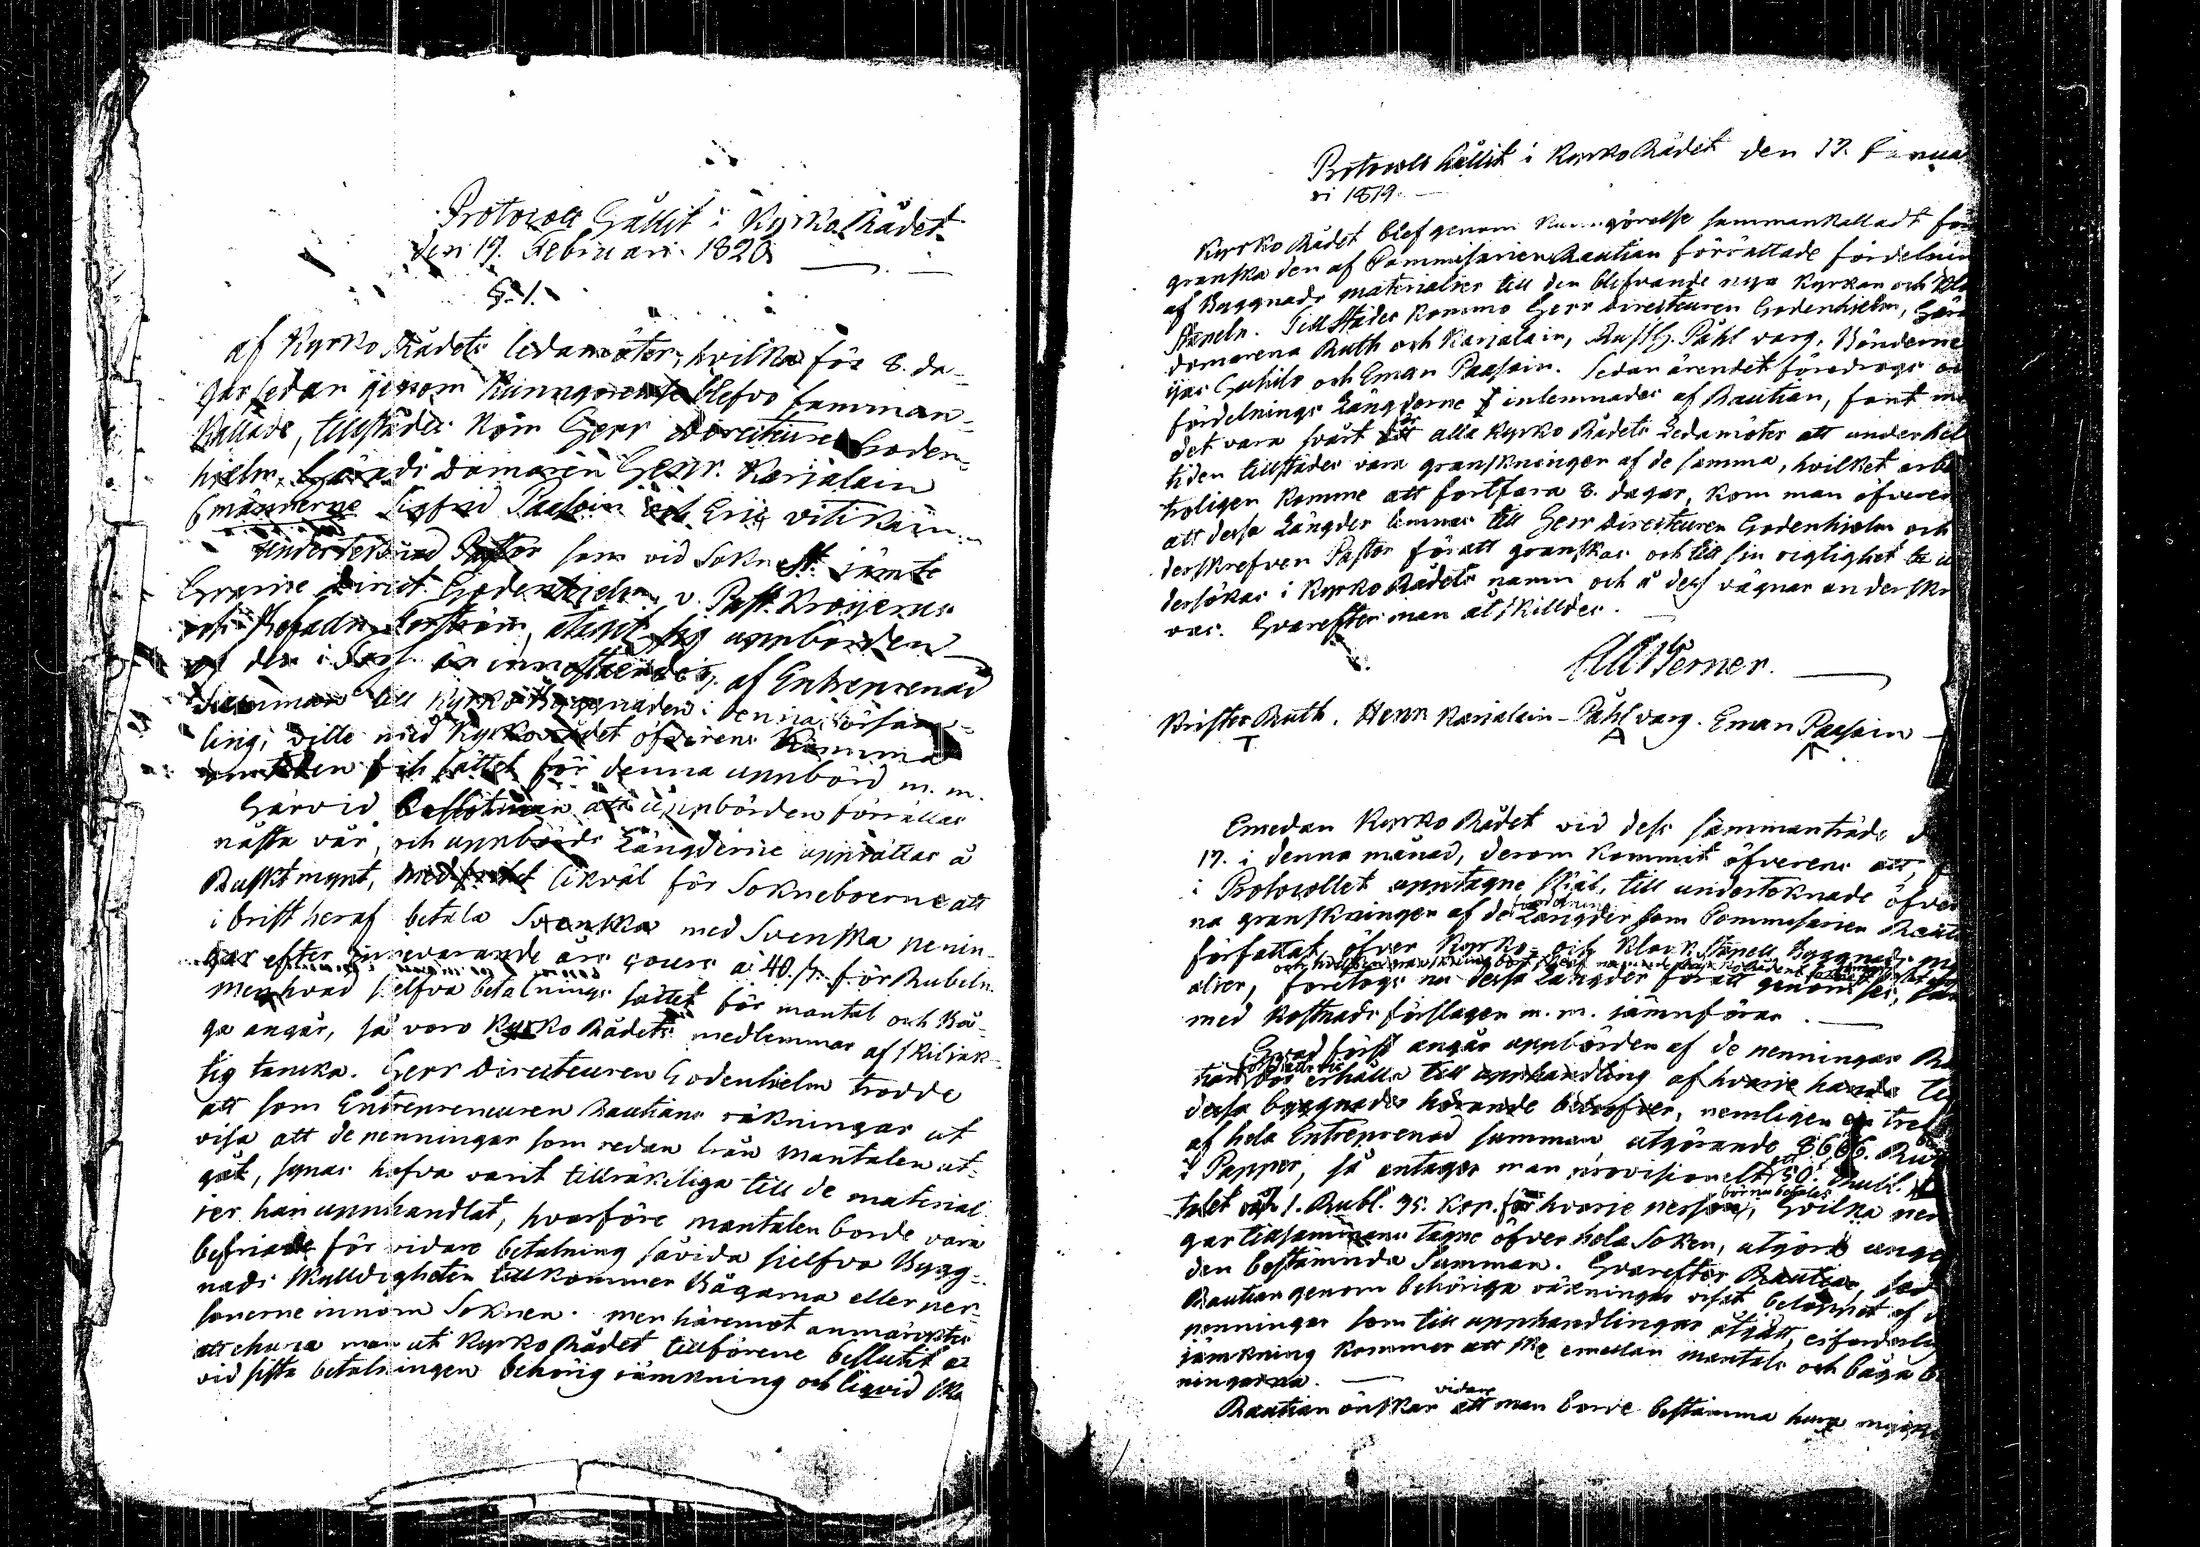 Protocoll hållit i Kyrko Rådet
den 17. Februari 1820
§. 1.
af Kyrko Rådets ledamöter, hvilka för 8. da-
gar sedan genom Kunngörelse blefvo samman-
kallade, tillstädes kom Herr Directeuren Goden-
hjelm, Härads Domaren Henr. Karjalain
6männerne Sigfrid Paasoin och Eric Vitikain
Undertecknad Pastor som vid Sokne st. jämte
Herrarne Direct. Godenhjelm, v. Past. Kroijerus
och Befalln. åtagit sig uppbörden
af den i Sochn innestående af Entreprenad
Summan till Kyrko Byggnaden i denna Försam-
ling, ville med Kyrko Rådet öfverens komma
om tiden och sättet för denna uppbörd m. m.
Härvid beslöts att uppbörden förrättas
nästa vår, och uppbörds Längderne upprättas å
Ruskt mynt, med likväl för Sokneboerne att
i brist heraf betala Svenska med Svenska penin-
gar efter innevarande års cours à 40. s. för Rubeln.
Men hvad sjelfva betalnings sättet för mantal och Bå-
ga angår, så voro Kyrko Rådets medlemmar af skiljak-
tig tanka. Herr Directeuren Godenhjelm trodde
att som Entrepreneuren Rautians räkningar ut
visa att de penningar som redan från Mantalen ut-
gåt, synas hafva varit tillräkiliga till de material-
ier han upphandlat, hvarföre mantalen borde vara
befriade för vidare betalning såvida sjelfva Bygg-
nads skylldigheten tillkommer Bågarna eller per-
sonerne innom Soknen. men häremot anmärktes
att ehuru man ut Kyrko Rådet tillförene beslutit at
vid sista betalningen behörig jämkning och liqvid ska
Protocoll hållit i Kyrko Rådet den 17. Janua
ri 1819.
Kyrko Rådet blef genom Kunngörelse sammankalladt för
granska den af Commissarien Rautian förrättade fördelnin
af Byggnads materialier till den blifvande nya Kyrkan och Klo
stapeln. Tillstädes kommo Herr Directeuren Godenhjelm, Hära
domarena Ruth och Karjalain, Rusth. Påhl Varg, Bönderne
och Eman Paasoin. Sedan ärendet föredrogs oc
fördelnings Längderne inlemnades af Rautian, fant m
det vara svårt för alla Kyrko Rådets Ledamöter att under hel
tiden tillstädes vara granskningen af de samma, hvilket arbe
troligen komme att fortfara 8. dagar, kom man öfverens
att dessa Längder lemnas till Herr Directeuren Godenhjelm och
derskrefven Pastor för att granskas och till sin rigtighet u
dersökas i Kyrko Rådets namn och å dess vägnar underskr
vas. Hvarefter man åtskilldes.
Werner.
Krister Ruth. Henr Karjalain - Påhl Varg. Eman Paasoin
Emedan Kyrko Rådet vid dess sammanträde d
17. i denna månad, derom kommit öfverens att,
i Protocollet upptagne skäl, till undertecknade öfver
na granskningen af de Längder som Commissarien Rauti
författat öfver Kyrko- och Klockstapels Byggnads m
alier, företogs nu dessa Längder för att genom ses,
med kostnads förslagen m. m. jämnföras.
Hvad först angår uppbörden af de penningar Ra
tian bör erhålla till upphandling af hvarje handa ti
dessa byggnader hörande behofver, nemligen en tred
af hela Entreprenad summan utgörande 8666. Rub
i Papper, så antages man provisionelt 50. Rubl.
talet och 1. Rubl. 95. Kop. för hvarje person, Hvilka pen
gar tillsammans tagne öfver hela Soken, utgöra unge
den bestämda Summan. Hvarefter Rautian, sed
Rautian genom behöriga räkningar visat beloppet af d
penningar som till upphandlingar åtgått, erforderlig
jämkning kommer att ske emellan mantals och båga b
ningarna.
Rautian önskar vidare att man borde bestämma huru